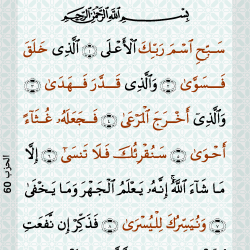 بِسْمِ ٱللَّهِ ٱلرَّحْمَٰنِ ٱلرَّحِيمِ
سَبِّحِ ٱسْمَ رَبِّكَ ٱلْأَعْلَى ١ ٱلَّذِى خَلَقَ
فَسَوَّىٰ ٢ وَٱلَّذِى قَدَّرَ فَهَدَىٰ ٣
وَٱلَّذِىٓ أَخْرَجَ ٱلْمَرْعَىٰ ٤ فَجَعَلَهُۥ غُثَآءً
أَحْوَىٰ ٥ سَنُقْرِئُكَ فَلَا تَنسَىٰٓ ٦ إِلَّا
مَا شَآءَ ٱللَّهُ إِنَّهُۥ يَعْلَمُ ٱلْجَهْرَ وَمَا يَخْفَىٰ
٧ وَنُيَسِّرُكَ لِلْيُسْرَىٰ ٨ فَذَكِّرْ إِن نَّفَعَتِ
الحزب 60